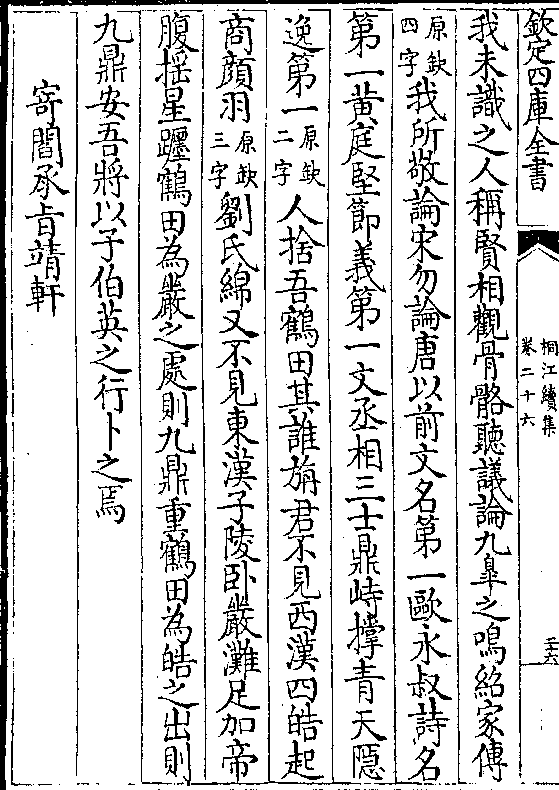 欽定四庫全書
桐江續集
卷二十六
二十六
我未識之人稱賢相觀骨骼聽議論九臯之鳴紹家傳
原欽四字我所敬論宋勿論唐以前文名第一歐永叔詩名
第一黄庭堅節義第一文丞相三士鼎峙撐青天隱
逸第一原欽二字人捨吾鶴田其誰旃君不見西漢四皓起
商顔羽原欽三字劉氏綿又不見東漢子陵卧嚴灘足加帝
腹摇星躔鶴田為嚴之處則九鼎重鶴田為皓之出則
九鼎安吾將以子伯英之行卜之焉
寄閻承旨靖軒